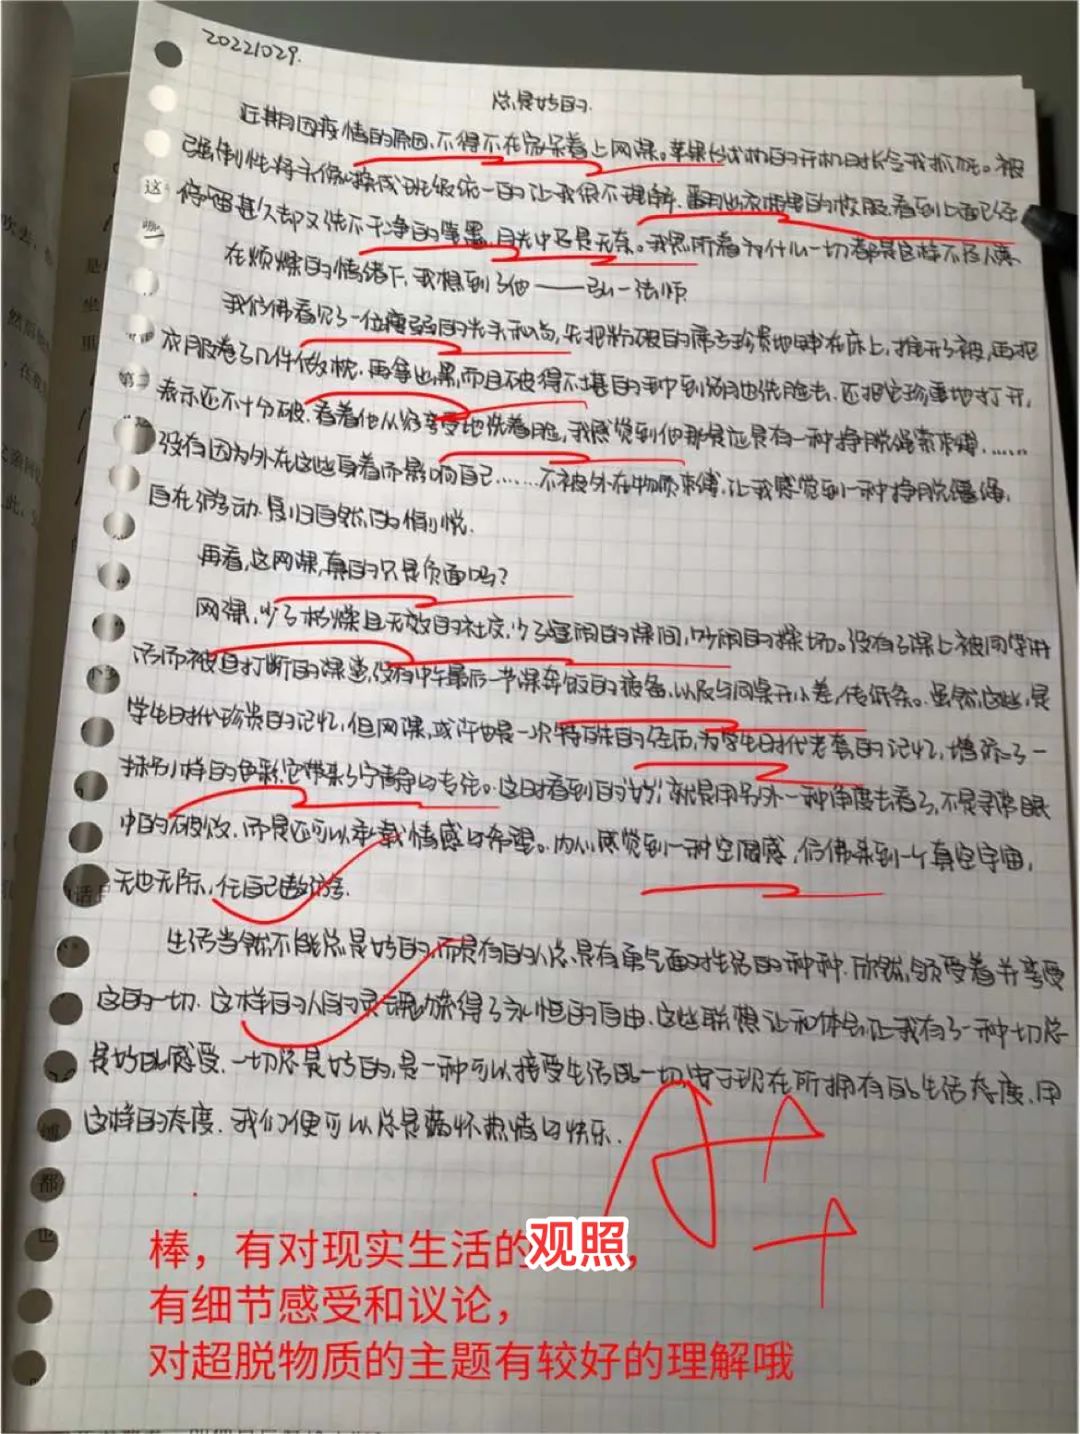 20221029.
总是好的.
近期因疫情的原因,不得不在家呆着上网课。苹果台式机的开机时长令我抓狂。被
强制性将头像换成班级统一的让我很不理解.翻出衣柜里的校服,看到上面已经
停留甚久却又洗不干净的笔墨,目光中尽是无奈。我思所着为什么一切都是这样不尽人意.
在烦燥的情绪下,我想到了他——弘一法师.
我仿佛看见了一位瘦弱的光头和尚,先把粉破的席子珍贵地铺在床上,摊开了被,再把
衣服卷了几件做枕.再拿出黑而且不被得不堪的巾到湖边洗脸去.还把它珍重地打开,
表示还不十分破.看着他从容享受地洗着脸,我感觉到他那是应是有一种挣脱绳索束缚……
没有因为外在这些身着而影响自己……不被外在物质束缚.让我感觉到一种挣脱缰绳,
自在浮动.复归自然的愉悦.
再看,这网课,真的只是负面吗?
网课,少了枯燥且无效的社交,少了喧闹的课间,吵闹的操场。没有了课上被同学讲
话而被迫打断的课堂,没有中午最后一节课奔饭的疲备,以及与同桌开小差,传纸条。虽然,这些,是
学生时代珍贵的记忆,但网课,或许也是一次特殊的经历,为学生时代老套的记忆,增添了一
抹别样的色彩,它带来了宁静与专注。这时看到的"好",就是用另外一种角度去看了,不是寻常眼
中的破败.而是还可以承载情感与希望。内心感觉到一种空阔感,仿佛来到一个真空宇宙,
无边无际,任自己遨游.
生活当然不能总是好的,而是有的人总是有勇气面对生活的种种.欣然领受着并享受
这的一切.这样的人的灵魂亦获得了永恒的自由.这些联想让和体会让我有了一种一切总
是好的感受.一切总是好的,是一种可以接受生活的一切,安于现在所拥有的生活态度.用
这样的态度.我们便可以总是满怀热情与快乐.
A++
棒，有对现实生活的观照，
有细节感受和议论，
对超脱物质的主题有较好的理解哦